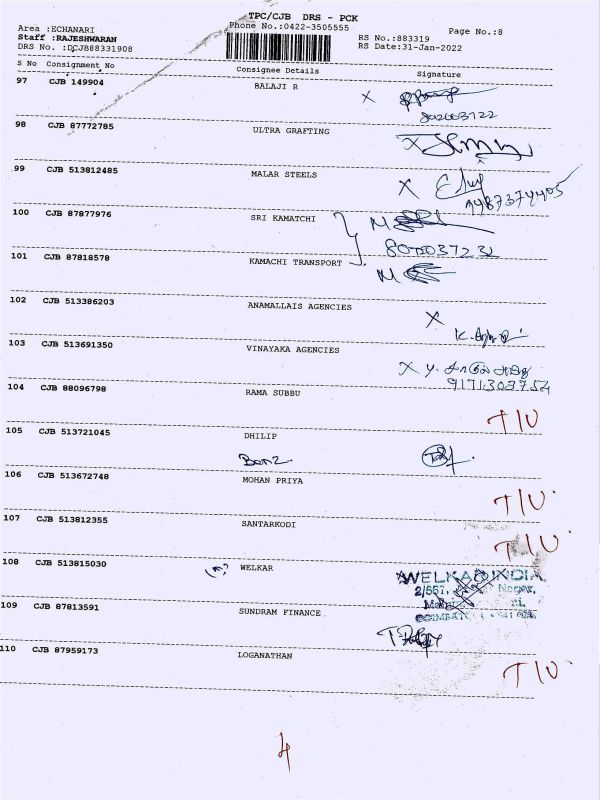 TPC/CJB DRS - PCK
Area :ECHANARI Phone No.:0422-3505555 Page No.:8
Staff :RAJESHWARAN RS No.:883319
DRS No. :DCJB88331908 RS Date:31-Jan-2022
S No Consignment No Consignee Details Signature
97 CJB 149904 BALAJI R X
98 CJB 87772785 ULTRA GRAFTING X
99 CJB 513812485 MALAR STEELS X
100 CJB 87877976 SRI KAMATCHI
101 CJB 87818578 KAMACHI TRANSPORT
102 CJB 513386203 ANAMALLAIS AGENCIES X
103 CJB 513691350 VINAYAKA AGENCIES X
9171303754
104 CJB 88096798 RAMA SUBBU T/U
105 CJB 513721045 DHILIP
106 CJB 513672748 MOHAN PRIYA T/U
107 CJB 513812355 SANTARKODI T/U
108 CJB 513815030 (?) WELKAR WELKA INDIA
2/551, Nagar,
109 CJB 87813591 SUNDRAM FINANCE
110 CJB 87959173 LOGANATHAN T/U
4